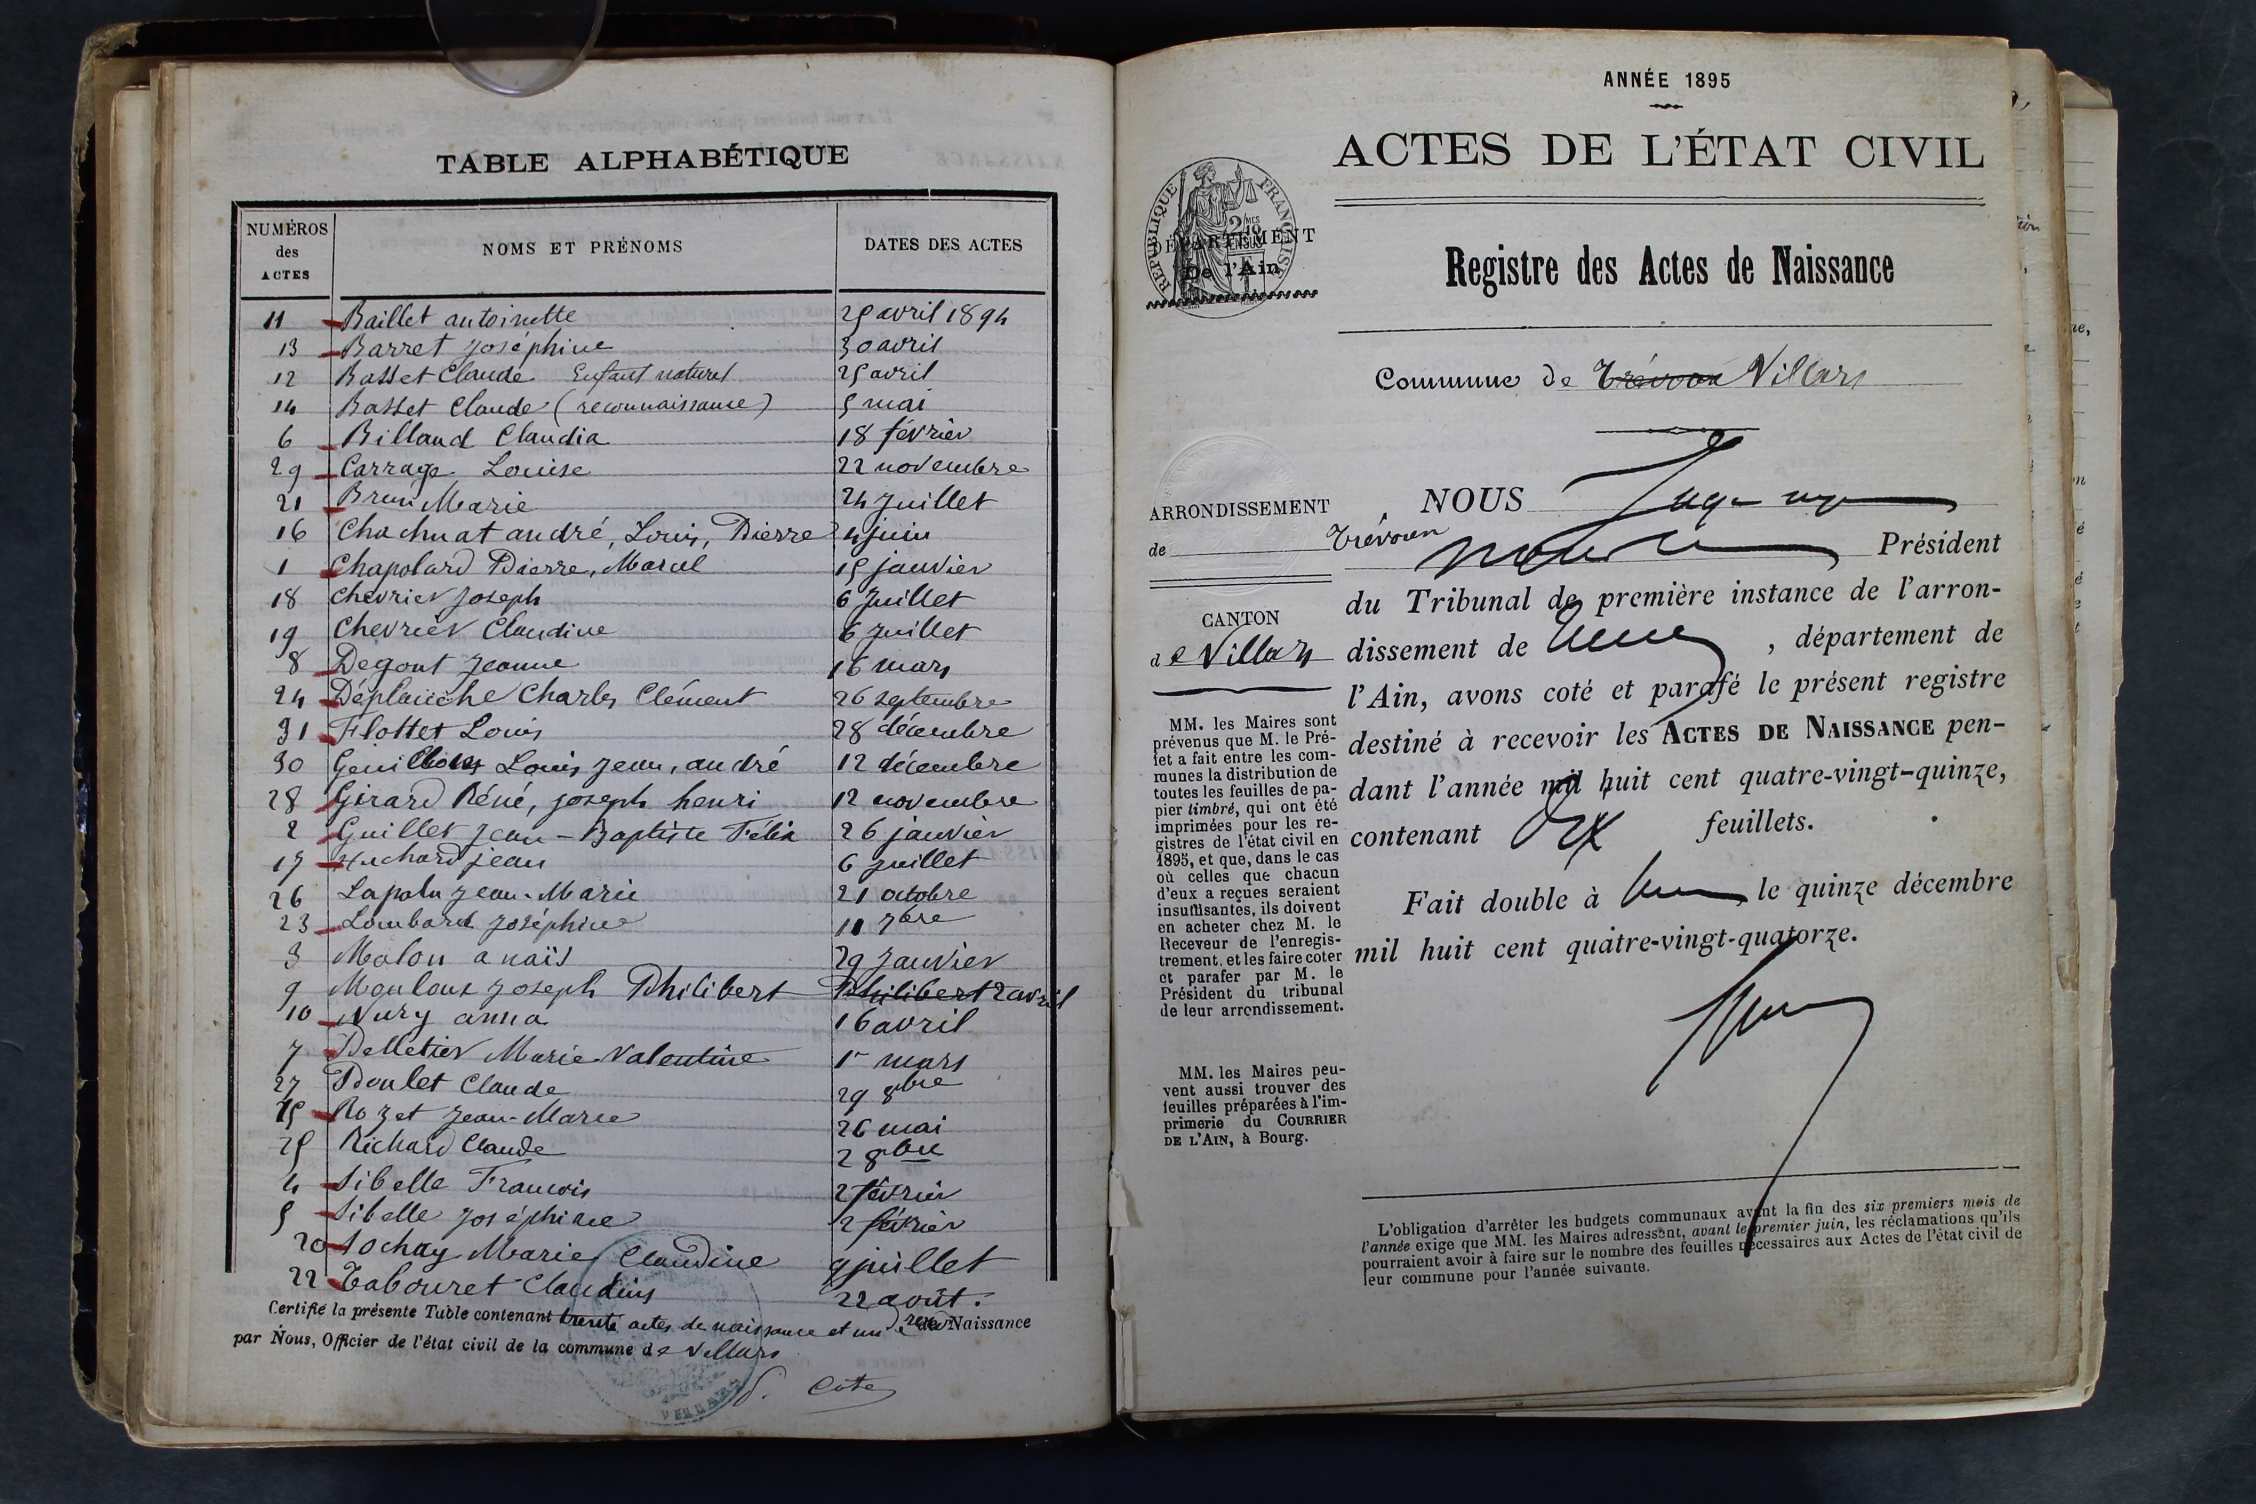 TABLE ALPHABÉTIQUE
NUMÉROS des ACTES NOMS ET PRÉNOMS DATES DES ACTES
11 Baillet antoinette 25 avril 1894
13 Barret Joséphine 30 avril
12 Basset Claude Enfant naturel 25 avril
14 Basset Claude (reconnaissance) 5 mai
6 Billaud Claudia 18 février
29 Carrage Louise 22 novembre
21 Brun Marie 24 Juillet
16 Chachuat andré, Louis, Pierre 4 juin
1 Chapolard Pierre, Marcel 15 janvier
18 Chevrier Joseph 6 Juillet
19 Chevrier Claudine 6 Juillet
8 Degout Jeanne 16 mars
24 Déplaiche Charles Clément 26 septembre
31 Flottet Louis 28 décembre
30 Louis Jean, andré 12 décembre
28 Girard Réné, joseph henri 12 novembre
2 Guillet Jean-Baptiste Félix 26 janvier
17 Huchard jean 6 juillet
26 Lapalu Jean-Marie 21 octobre
23 Lombard Joséphine 11 7bre
3 Malon anaïs 29 Janvier
9 Mouloux Joseph Philibert Philibert 2 avril
10 Nury anna 16 avril
7 Pelletier Marie-Valentine 1r mars
27 Poulet Claude 29 8bre
15 Rozet Jean-Marie 26 mai
25 Richard Claude 2 8bre
4 Sibelle Francois 2 février
5 Sibelle Joséphine 2 février
20 Sochay Marie Claudine 9 juillet
22 Tabouret Claudius 22 août.
Certifié la présente Table contenant trente actes de naissance et un de Naissance
par Nous, Officier de l'état civil de la commune de Villars
ANNÉE 1895
ACTES DE L'ÉTAT CIVIL
RÉPUBLIQUE FRANÇAISE
DÉPARTEMENT
De l'Ain
Registre des Actes de Naissance
Commune de Trévoux Villars
ARRONDISSEMENT
de Trévoux
CANTON
de Villars
MM. les Maires sont
prévenus que M. le Pré-
fet a fait entre les com-
munes la distribution de
toutes les feuilles de pa-
pier timbré, qui ont été
imprimées pour les re-
gistres de l'état civil en
1895, et que, dans le cas
où celles que chacun
d'eux a reçues seraient
insuffisantes, ils doivent
en acheter chez M. le
Receveur de l'enregis-
trement, et les faire coter
et parafer par M. le
Président du tribunal
de leur arrondissement.
MM. les Maires peu-
vent aussi trouver des
feuilles préparées à l'im-
primerie du COURRIER
DE L'AIN, à Bourg.
NOUS
Président
du Tribunal de première instance de l'arron-
dissement de , département de
l'Ain, avons coté et parafé le présent registre
destiné à recevoir les ACTES DE NAISSANCE pen-
dant l'année mil huit cent quatre-vingt-quinze,
contenant Dix feuillets.
Fait double à le quinze décembre
mil huit cent quatre-vingt-quatorze.
L'obligation d'arrêter les budgets communaux avant la fin des six premiers mois de
l'année exige que MM. les Maires adressent, avant le premier juin, les réclamations qu'ils
pourraient avoir à faire sur le nombre des feuilles nécessaires aux Actes de l'état civil de
leur commune pour l'année suivante.